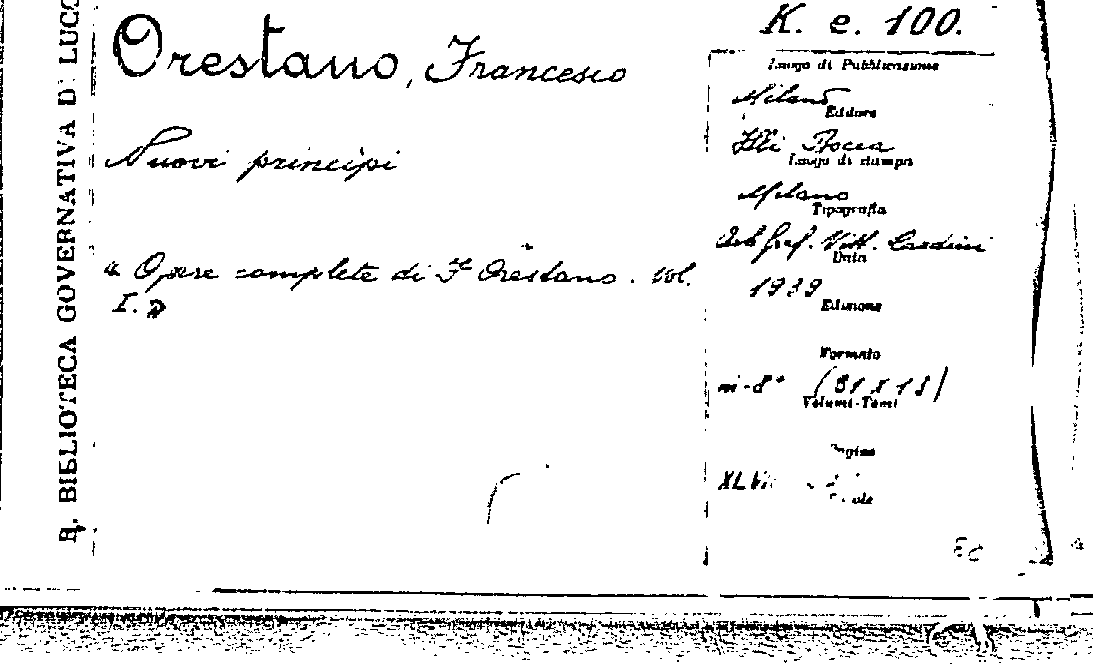 R. BIBLIOTECA GOVERNATIVA DI LUCC
K. e. 100.
Orestano, Francesco
Nuovi principi
« Opere complete di F Orestano. Vol.
I. »
Luogo di Pubblicazione
Milano
Editore
F.lli Bocca
Luogo di stampa
Milano
Tipografia
Vitt. Cardini
Data
1939
Edizione
Formato
in-8° (21 x 13)
Volumi-Tomi
Pagine
XLVII